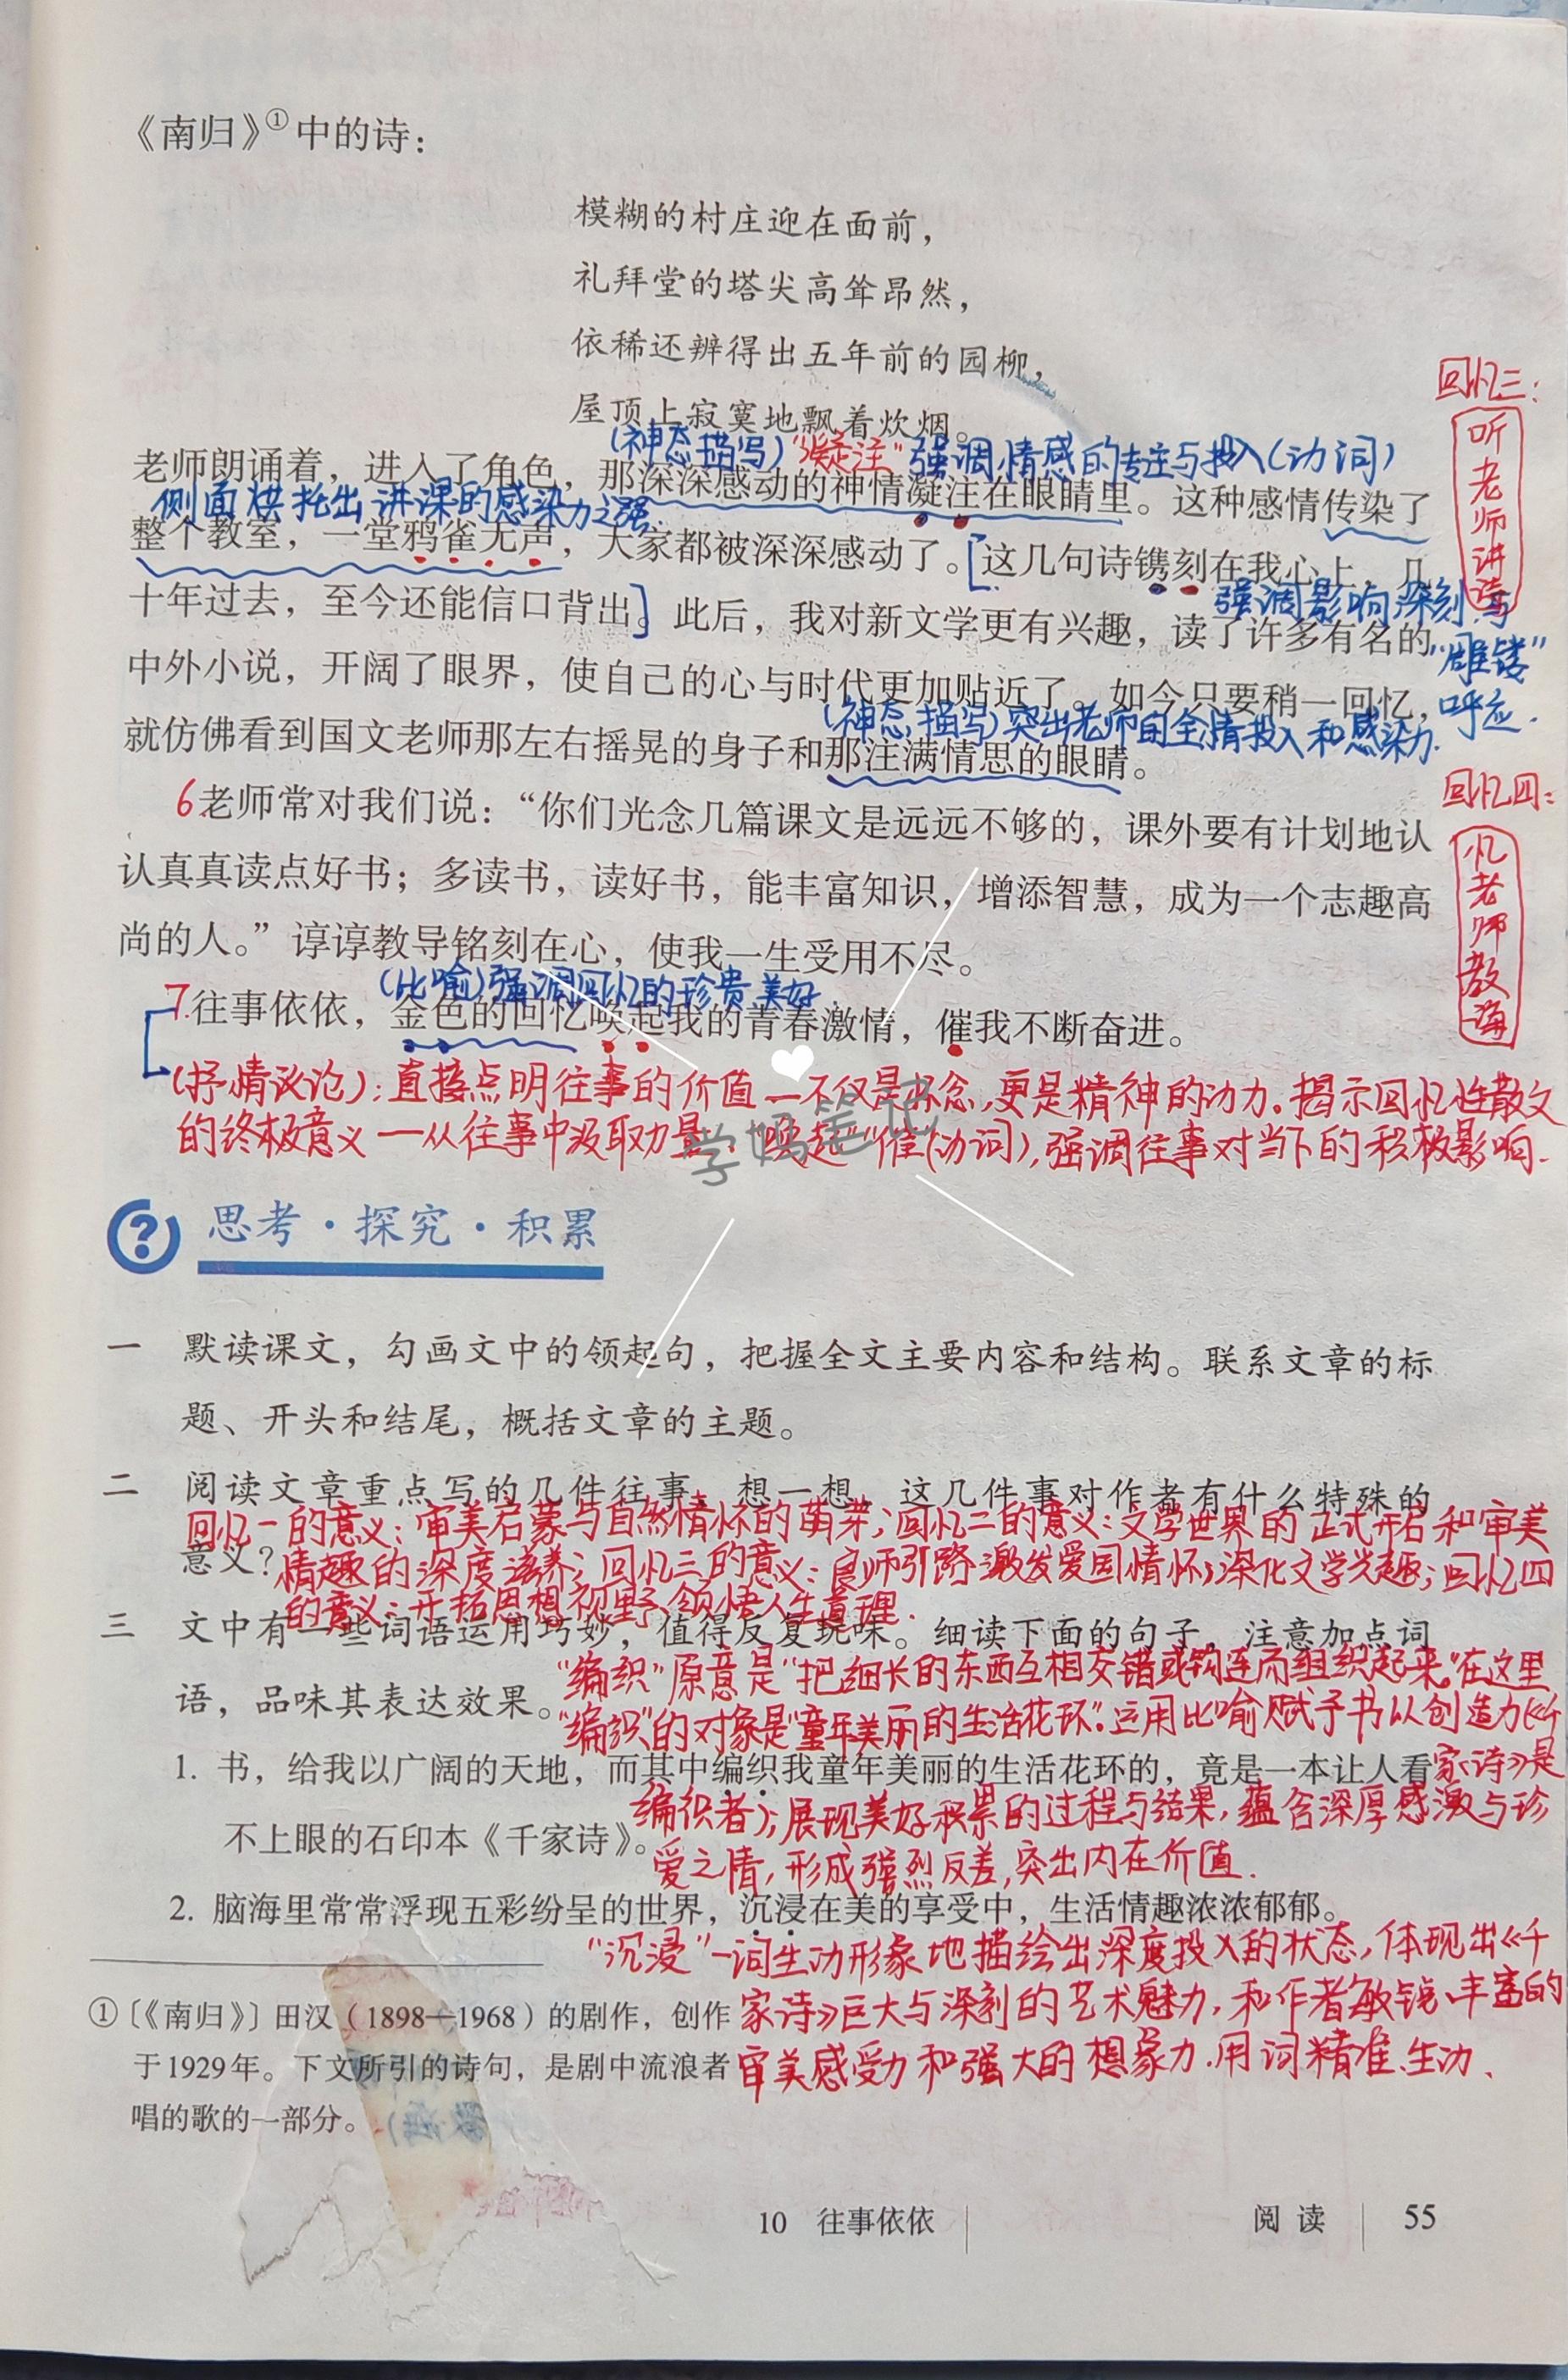 《南归》①中的诗：
模糊的村庄迎在面前，
礼拜堂的塔尖高耸昂然，
依稀还辨得出五年前的园柳，
屋顶上寂寞地飘着炊烟。
回忆三：
听老师讲诗
(神态描写)“凝注”强调情感的专注与投入(动词)
老师朗诵着，进入了角色，那深深感动的神情凝注在眼睛里。这种感情传染了
侧面烘托出讲课的感染力之强.
整个教室，一堂鸦雀无声，大家都被深深感动了。[这几句诗镌刻在我心上，几
强调影响深刻.与
“雕镂”
呼应.
十年过去，至今还能信口背出]。此后，我对新文学更有兴趣，读了许多有名的
中外小说，开阔了眼界，使自己的心与时代更加贴近了。如今只要稍一回忆，
(神态描写)突出老师的全情投入和感染力.
就仿佛看到国文老师那左右摇晃的身子和那注满情思的眼睛。
回忆四：
忆老师教诲
6老师常对我们说：“你们光念几篇课文是远远不够的，课外要有计划地认
认真真读点好书；多读书，读好书，能丰富知识，增添智慧，成为一个志趣高
尚的人。”谆谆教导铭刻在心，使我一生受用不尽。
(比喻)强调回忆的珍贵美好.
7.往事依依，金色的回忆唤起我的青春激情，催我不断奋进。
(抒情议论)：直接点明往事的价值—不仅是怀念,更是精神的动力。揭示回忆性散文
的终极意义—从往事中汲取力量."唤起""催(动词),强调往事对当下的积极影响.
学妈笔记
思考·探究·积累
一 默读课文，勾画文中的领起句，把握全文主要内容和结构。联系文章的标
题、开头和结尾，概括文章的主题。
二 阅读文章重点写的几件往事，想一想，这几件事对作者有什么特殊的
意义？
回忆一的意义：审美启蒙与自然情怀的萌芽；回忆二的意义：文学世界的正式开启和审美
情趣的深度滋养；回忆三的意义：良师引路,激发爱国情怀,深化文学兴趣；回忆四
的意义：开拓思想视野,领悟人生真理.
三 文中有一些词语运用巧妙，值得反复玩味。细读下面的句子，注意加点词
语，品味其表达效果。
“编织”原意是“把细长的东西互相交错或钩连而组织起来.”在这里
“编织”的对象是“童年美丽的生活花环”.运用比喻,赋予书以创造力(《千
家诗》是
编织者);展现美好积累的过程与结果,蕴含深厚感激与珍
爱之情,形成强烈反差,突出内在价值.
1. 书，给我以广阔的天地，而其中编织我童年美丽的生活花环的，竟是一本让人看
不上眼的石印本《千家诗》。
2. 脑海里常常浮现五彩纷呈的世界，沉浸在美的享受中，生活情趣浓浓郁郁。
“沉浸”一词生动形象地描绘出深度投入的状态,体现出《千
家诗》巨大与深刻的艺术魅力,和作者敏锐、丰富的
审美感受力和强大的想象力.用词精准、生动、
①〔《南归》〕田汉（1898—1968）的剧作，创作
于1929年。下文所引的诗句，是剧中流浪者
唱的歌的一部分。
10 往事依依
阅读 55